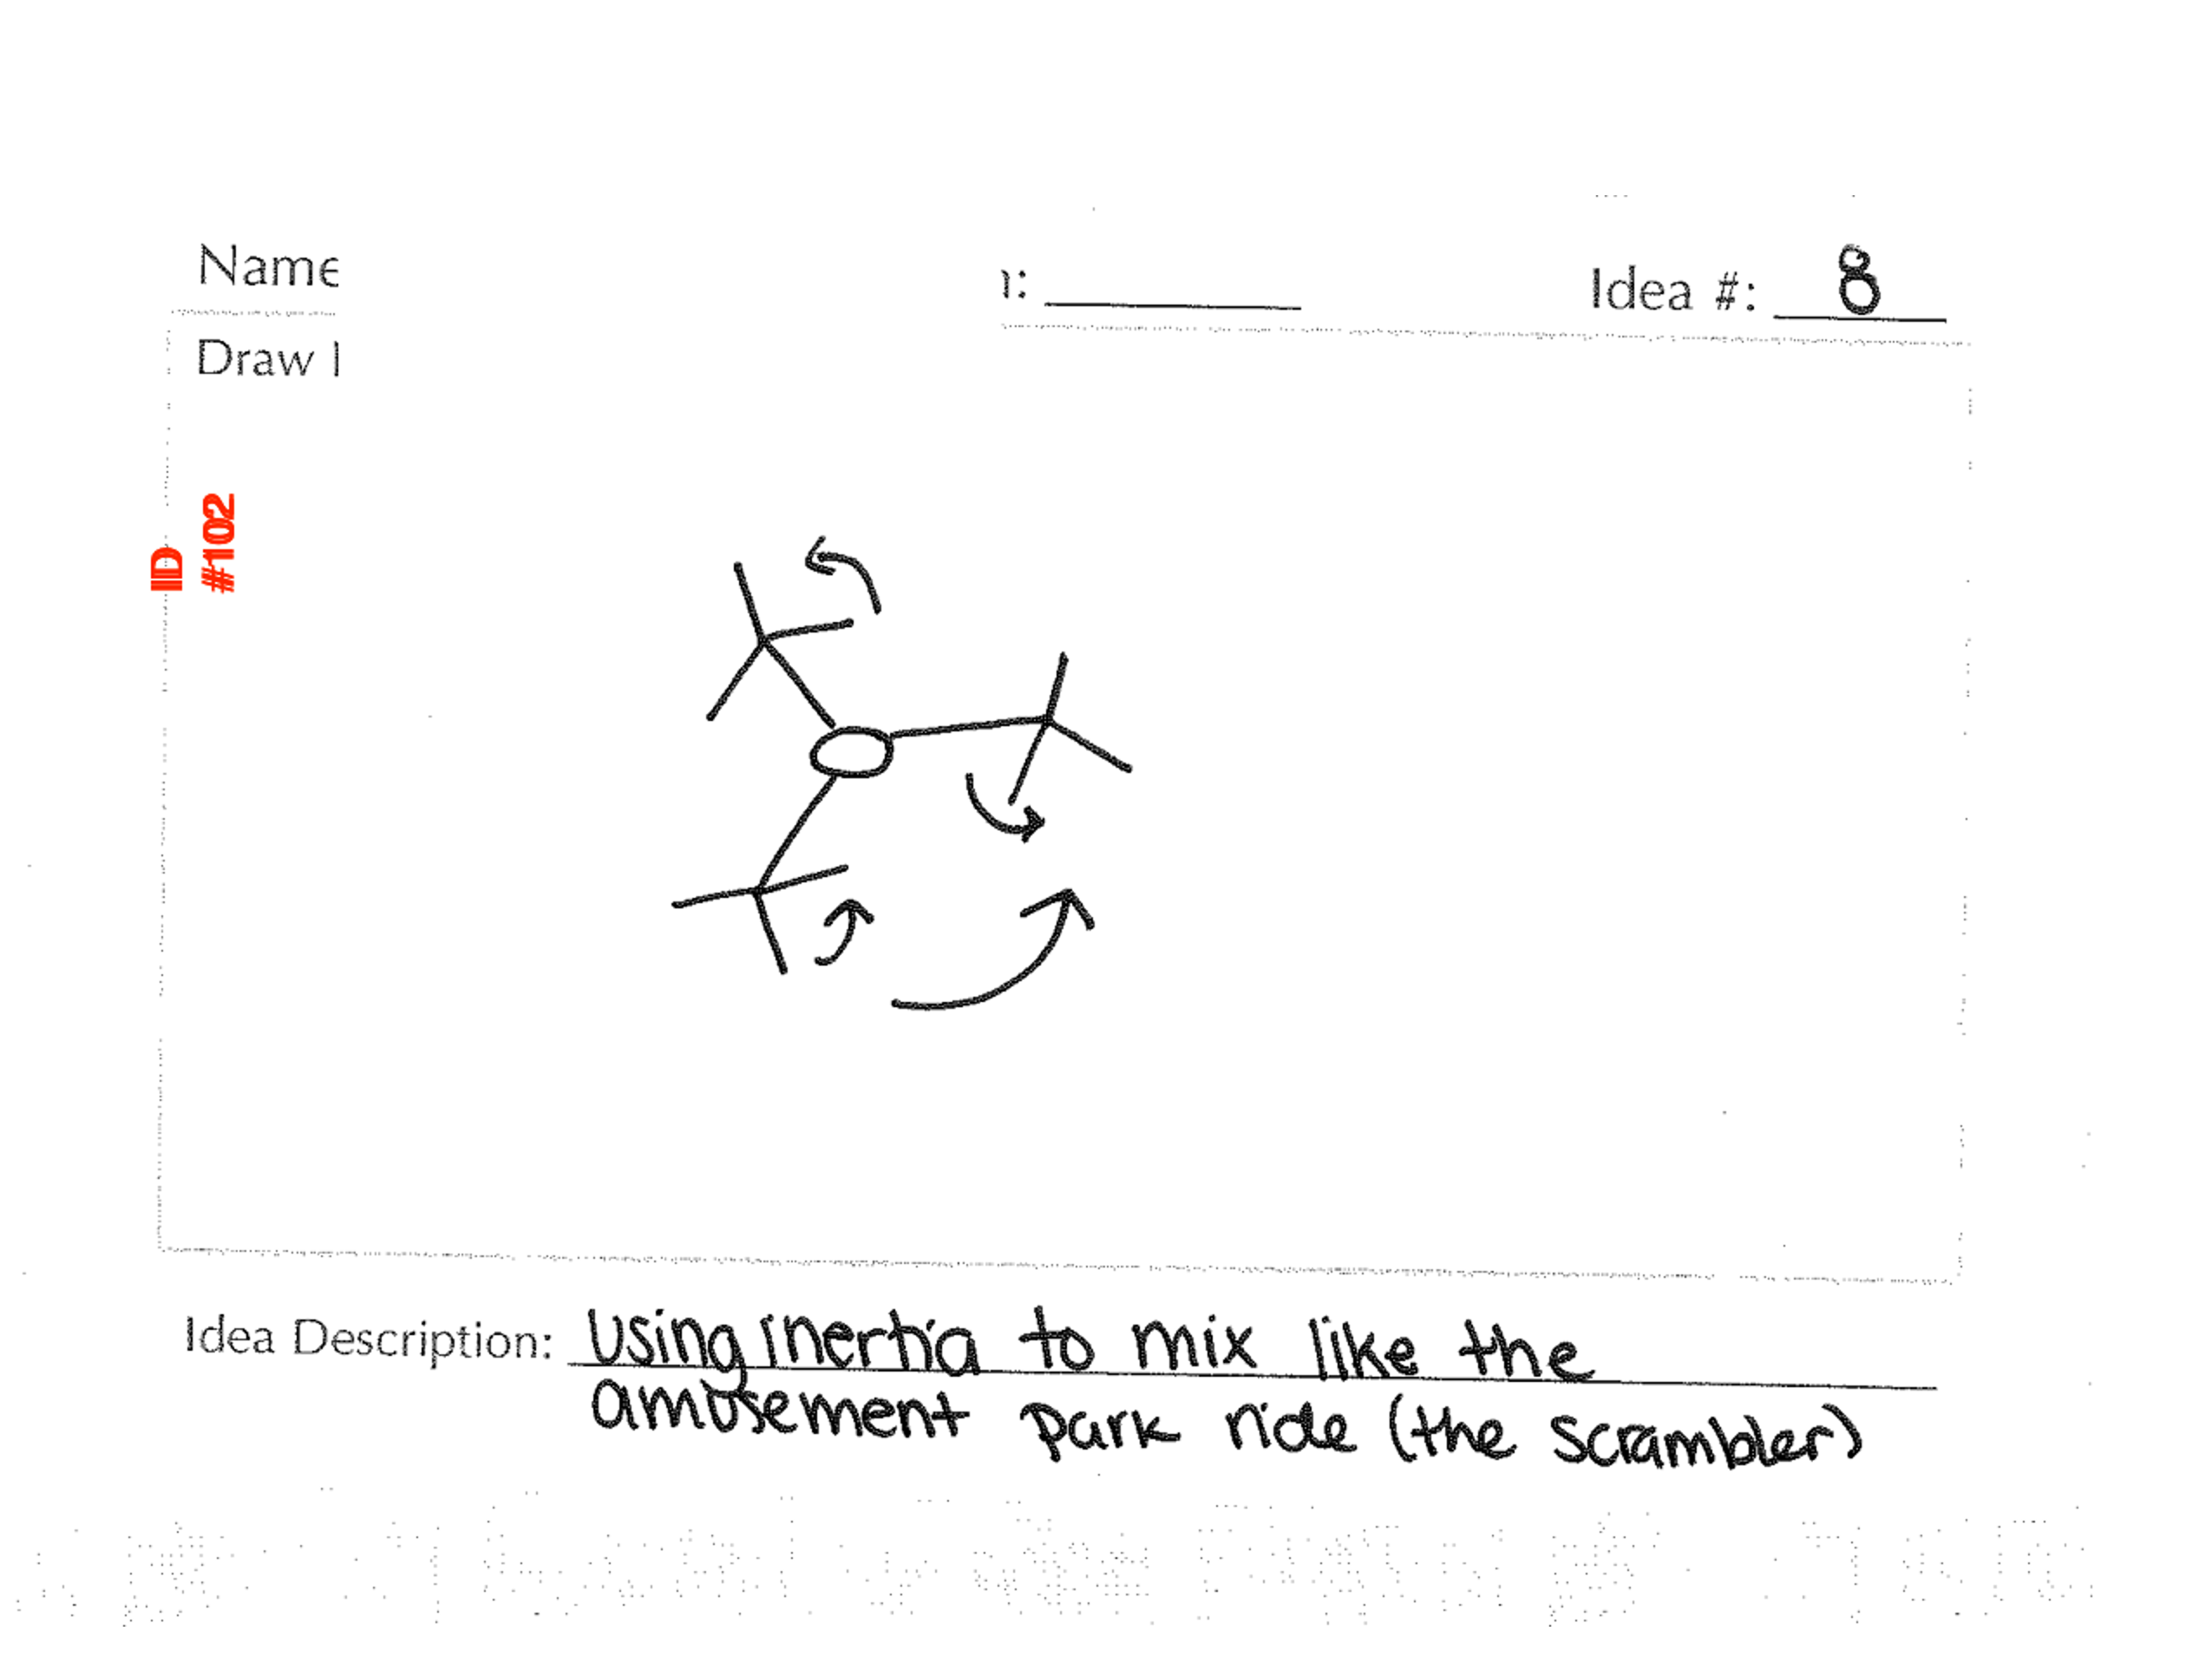 Name
ı: Idea #: 8
Draw I
ID
#102
Idea Description: Using inertia to mix like the
amusement park ride (the scrambler)